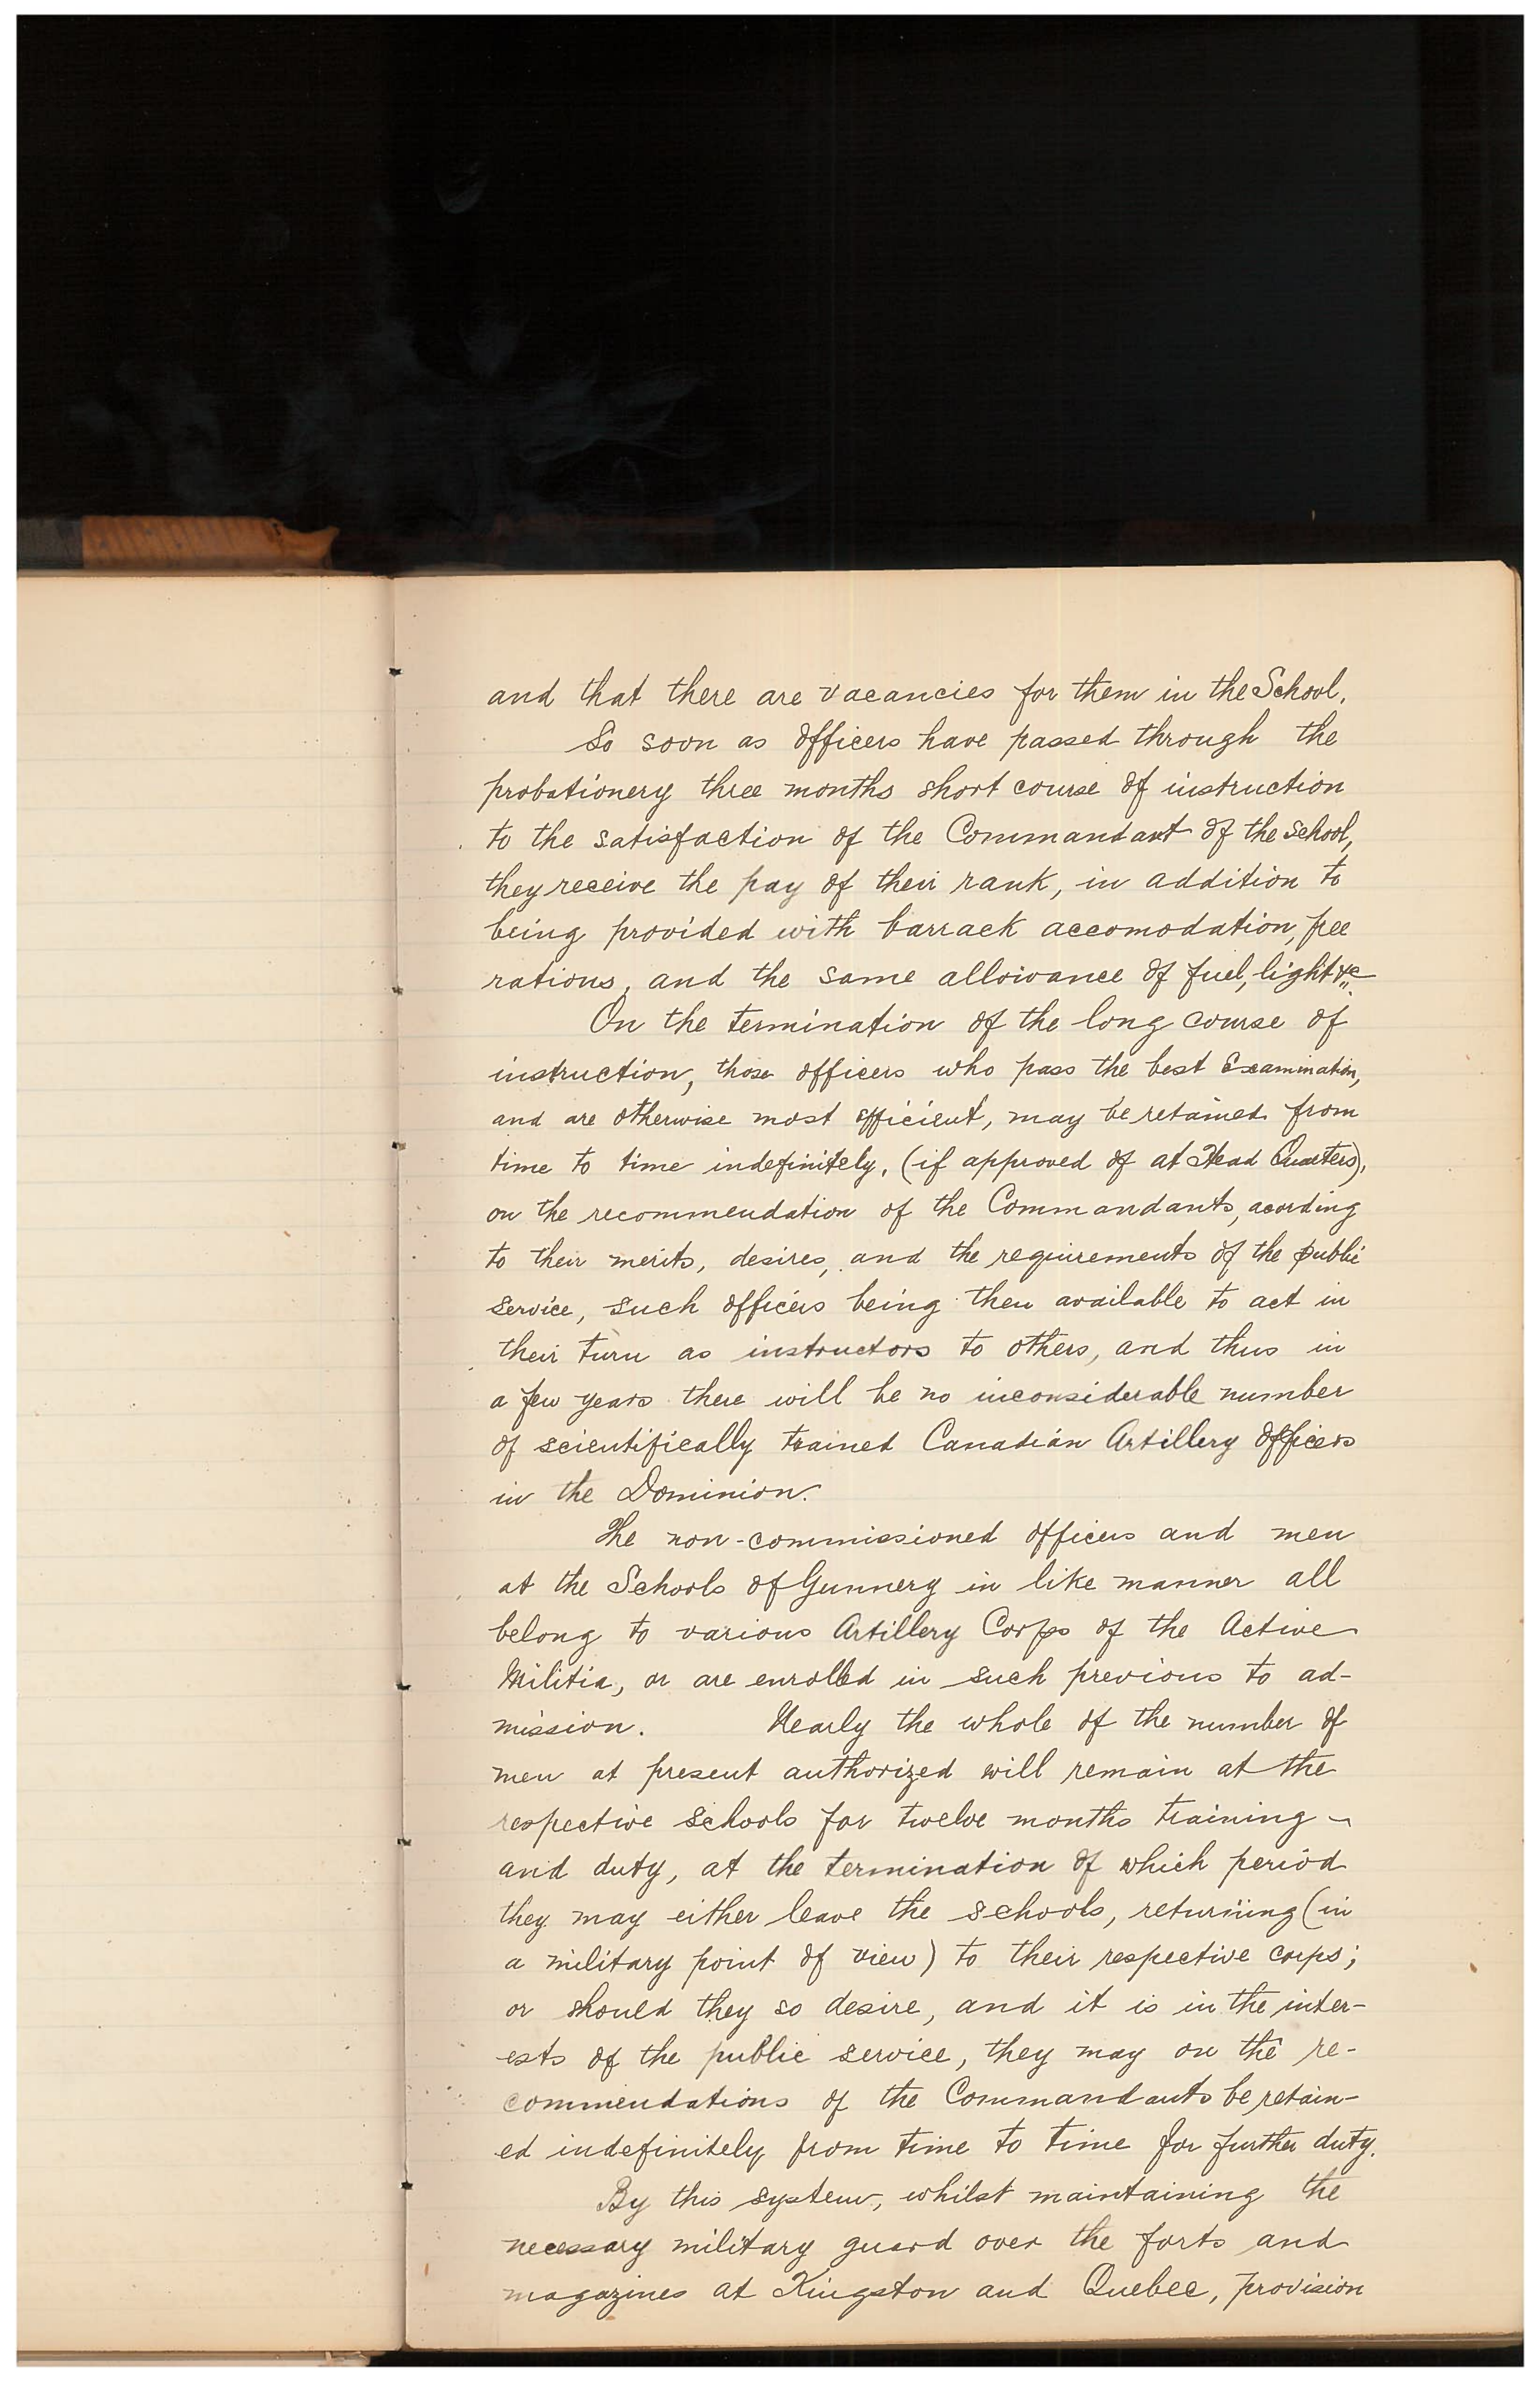 and that there are vacancies for them in the School.
So soon as officers have passed through the
probationery three months short course of instruction
to the satisfaction of the Commandant of the School,
they receive the pay of their rank, in addition to
being provided with barrack accomodation, free
rations, and the same allowance of fuel, light &c
On the termination of the long course of
instruction, those officers who pass the best Examination,
and are otherwise most efficient, may be retained from
time to time indefinitely, (if approved of at Head Quarters),
on the recommendation of the Commandants, acording
to their merits, desires, and the requirements of the public
service, such officers being then available to act in
their turn as instructors to others, and thus in
a few years there will be no inconsiderable number
of scientifically trained Canadian Artillery Officers
in the Dominion.
The non-commissioned officers and men
at the Schools of Gunnery in like manner all
belong to various Artillery Corps of the Active
Militia, or are enrolled in such previous to ad-
mission. Nearly the whole of the number of
men at present authorized will remain at the
respective schools for twelve months training
and duty, at the termination of which period
they may either leave the schools, returning (in
a military point of view) to their respective corps;
or should they so desire, and it is in the inter-
ests of the public service, they may on the re-
commendations of the Commandants be retain-
ed indefinitely from time to time for further duty.
By this system, whilst maintaining the
necessary military guard over the forts and
magazines at Kingston and Quebec, provision